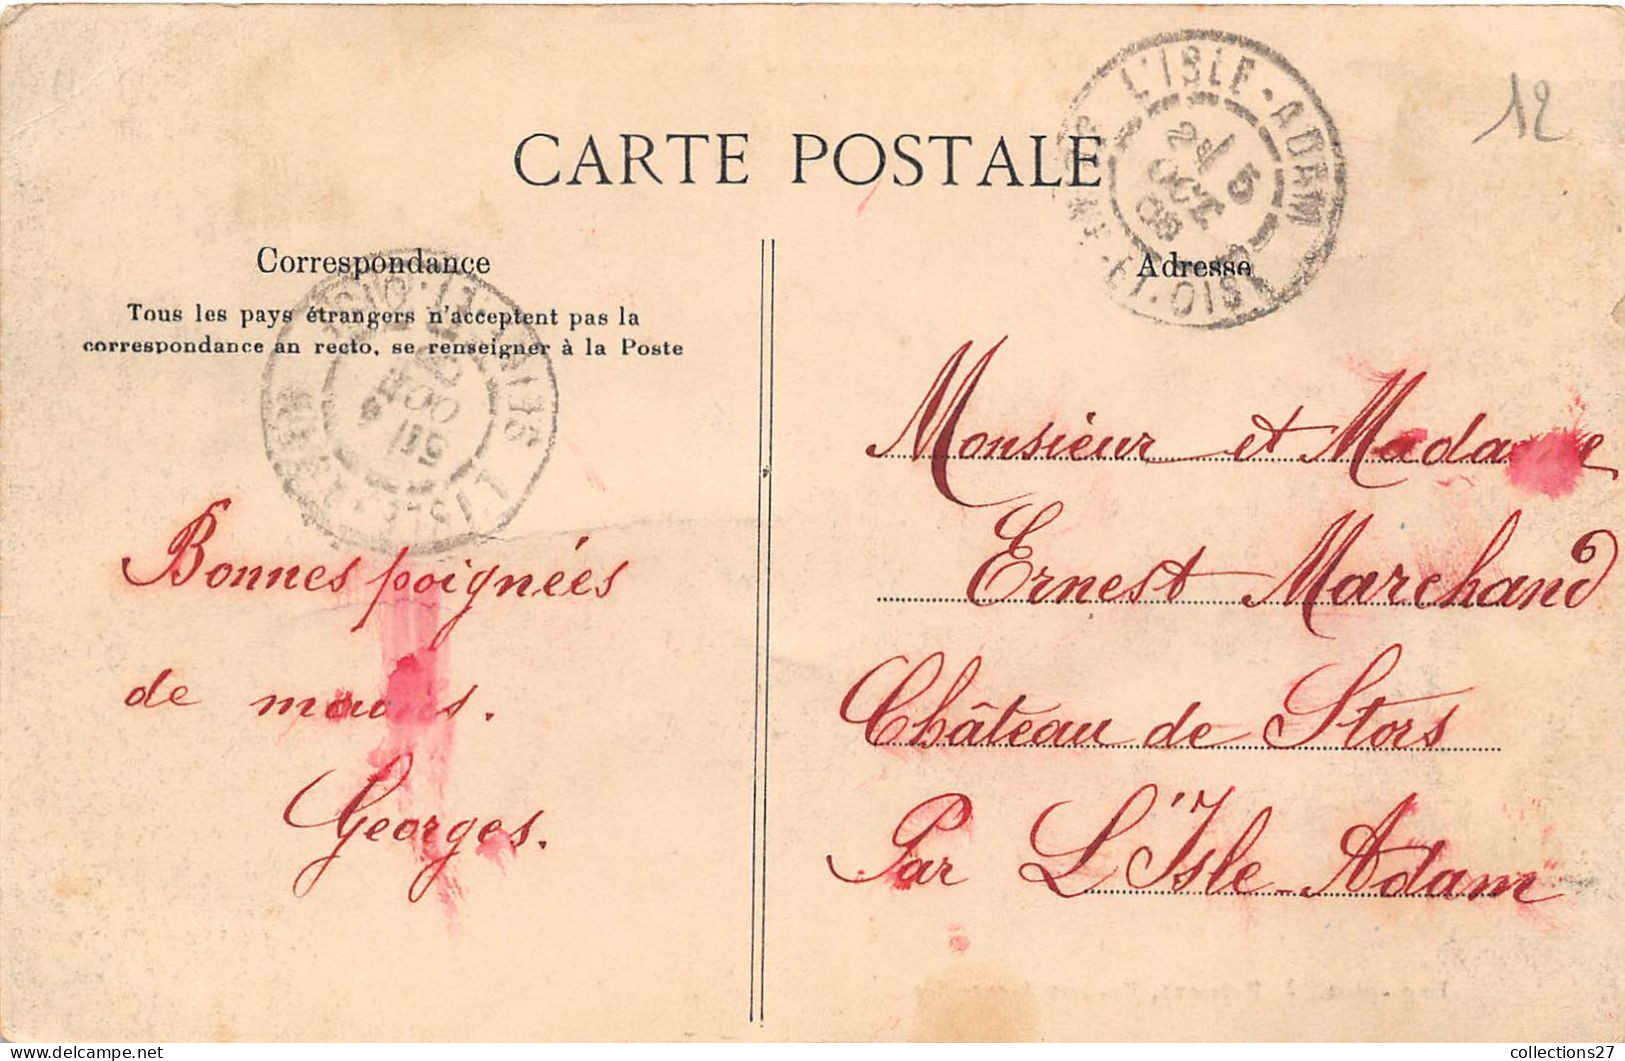 CARTE POSTALE
12
L'ISLE-ADAM
OCT
08
Correspondance
Tous les pays étrangers n'acceptent pas la
correspondance an recto, se renseigner à la Poste
Adresse
Bonnes poignées
de mains.
Georges.
Monsieur et Madame
Ernest Marchand
Château de Stors
Par L'Isle-Adam
collections27